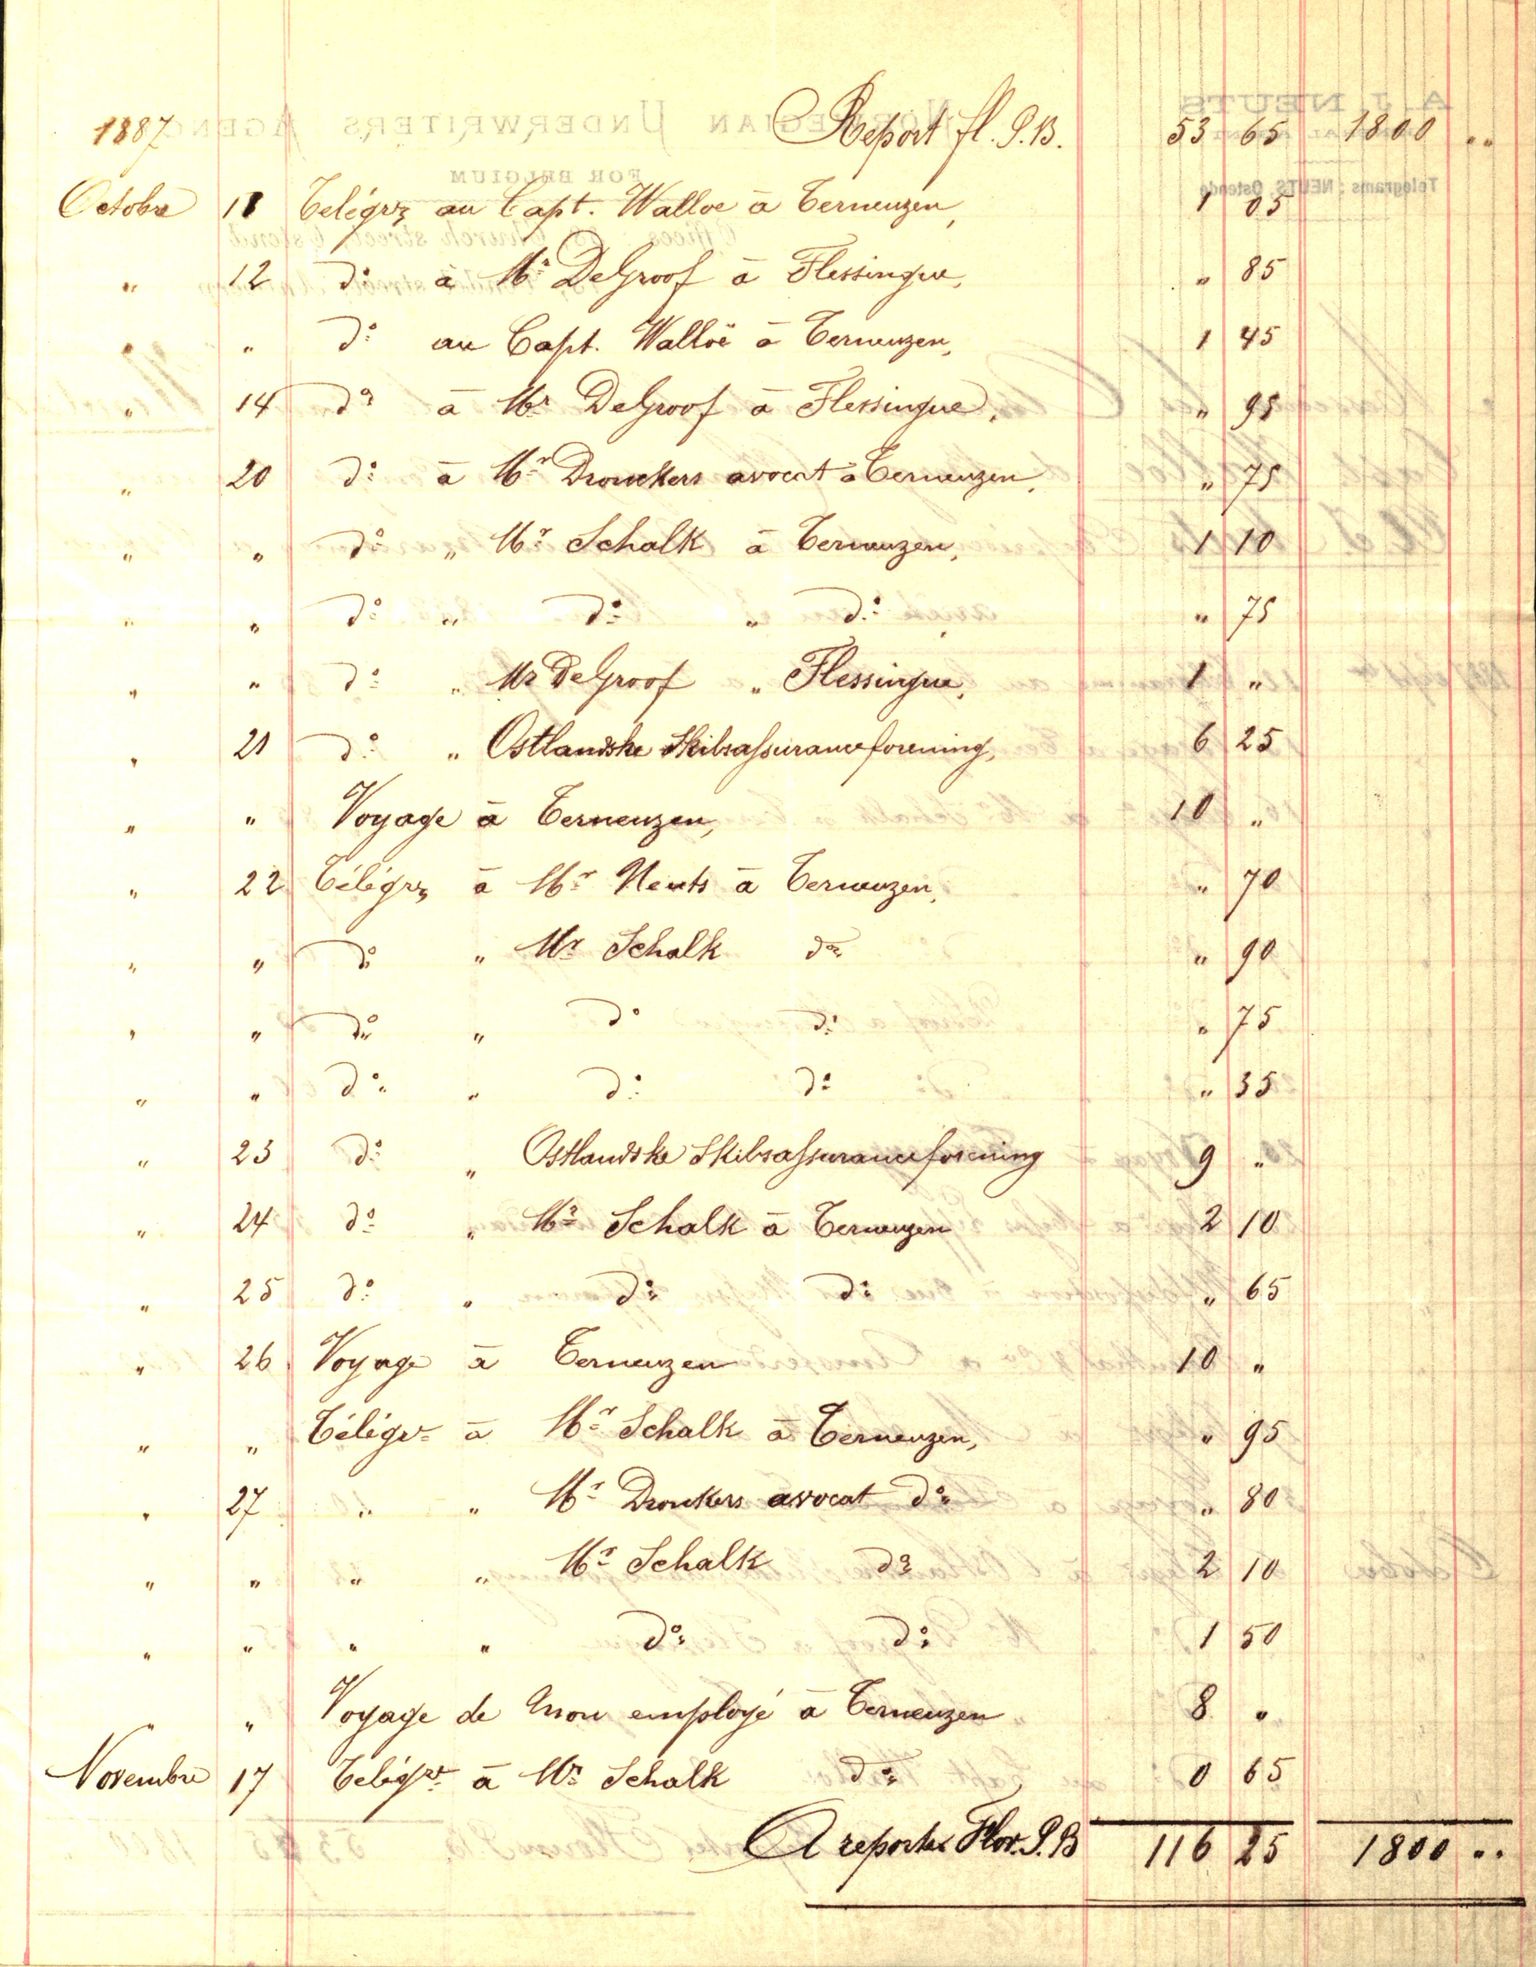 1887 Report fl. P.B. 53 65 1800 "
Octobre 11 Telégr. au Capt. Walloe à Terneuzen, 1 05
" 12 do à Mr DeGroof à Flessingue, " 85
" " do au Capt. Walloë à Terneuzen, 1 45
" 14 do à Mr DeGroof à Flessingue, " 95
" 20 do à Mr Dronckers avocat à Terneuzen, " 75
" " do " Mr Schalk à Terneuzen, 1 10
" " do " do " do " 75
" " do " Mr DeGroof " Flessingue, 1 "
" 21 do " Ostlandske Skibsassuranceforening, 6 25
" " Voyage à Terneuzen, 10 "
" 22 Télégr. à Mr Neuts à Terneuzen, " 70
" " do " Mr Schalk do " 90
" " do " do do " 75
" " do " do do " 35
" 23 do " Ostlandske Skibsassuranceforening 9 "
" 24 do " Mr Schalk à Terneuzen 2 10
" 25 do " do do " 65
" 26 Voyage à Terneuzen 10 "
" " Télégr à Mr Schalk à Terneuzen, " 95
" 27 " " Mr Dronkers avocat do " 80
" " " " Mr Schalk do 2 10
" " " " do do 1 50
" " Voyage de mon employé à Terneuzen 8 "
Novembre 17 Telégr à Mr Schalk do 0 65
A reporter Flor. P.B 116 25 1800 "